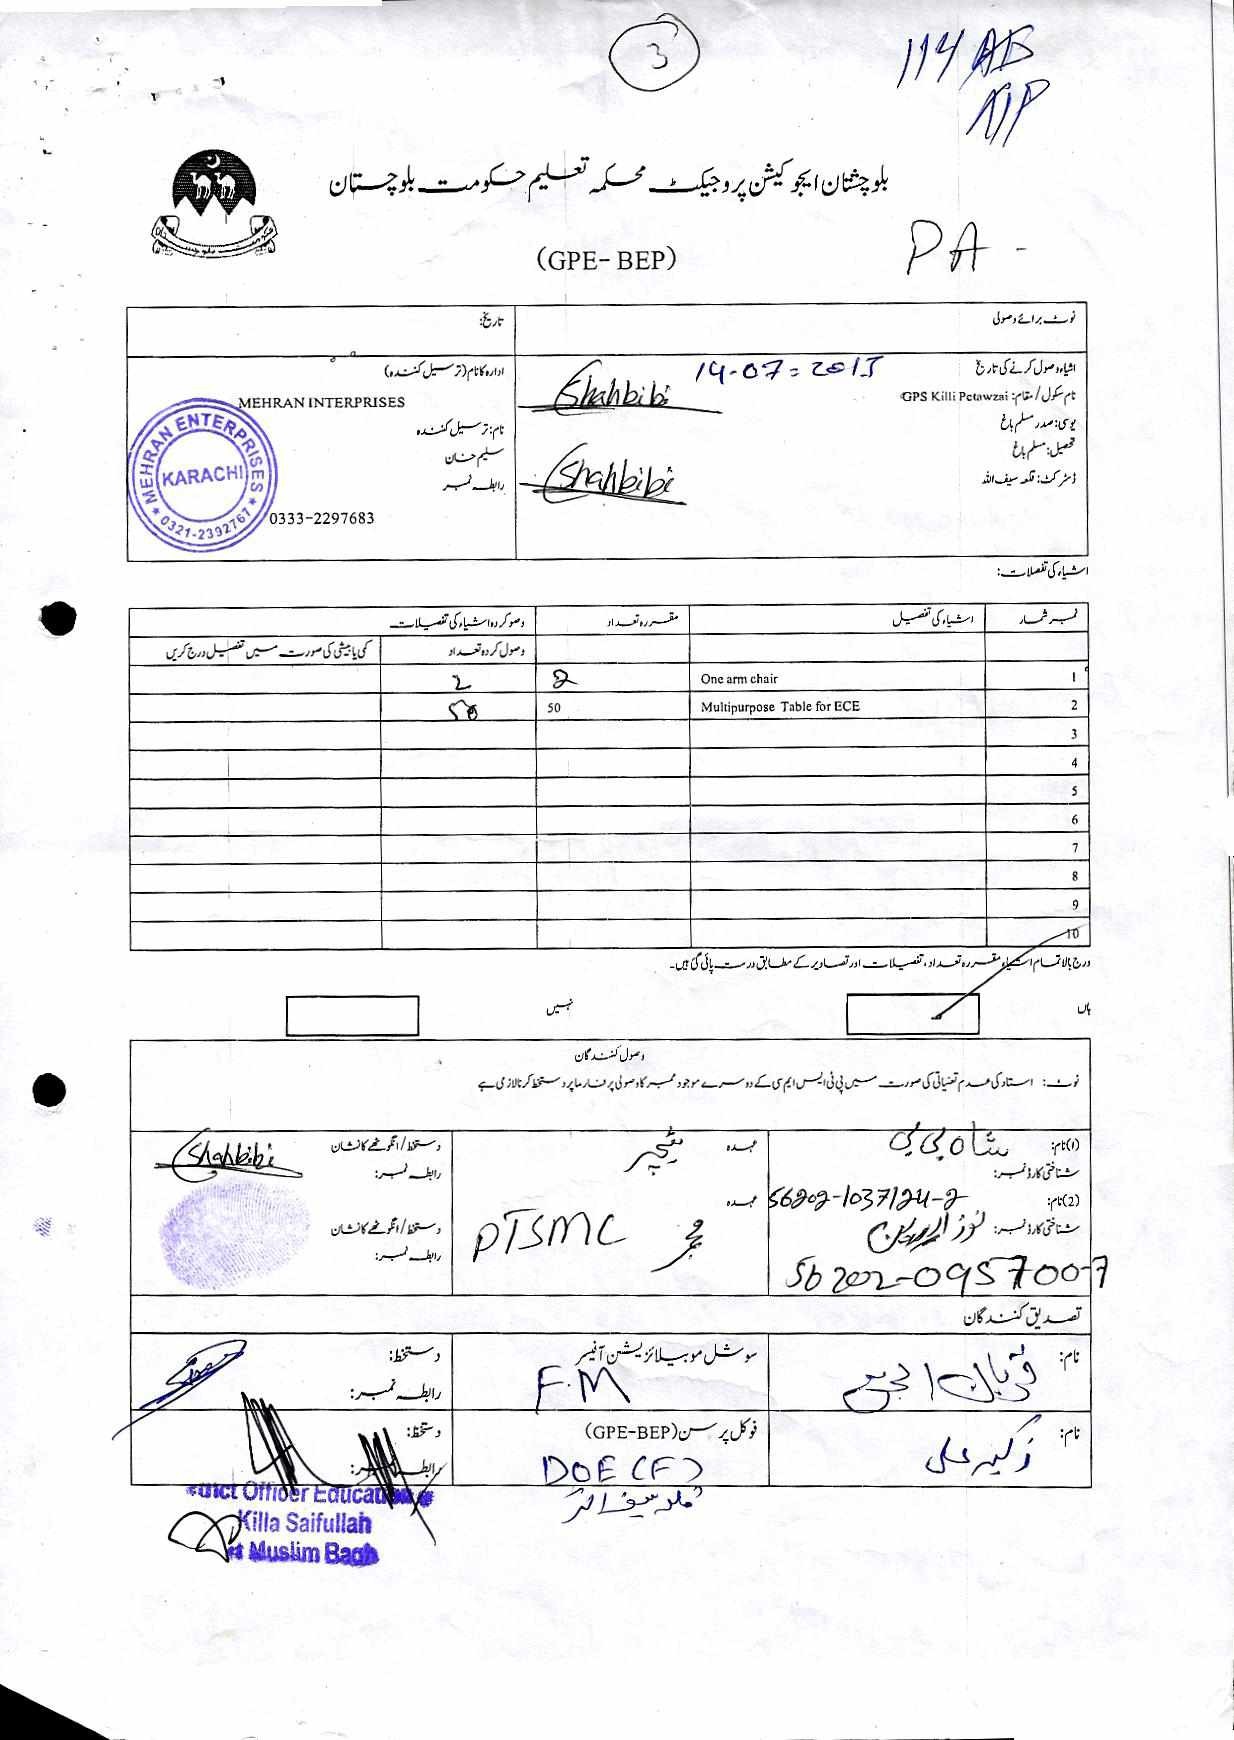 3
114 AB
PA -
بلوچستان ایجوکیشن پروجیکٹ محکمہ تعلیم حکومت بلوچستان
(GPE- BEP)
نوٹ برائے وصولی
تاریخ:
اشیاء وصول کرنے کی تاریخ 14-07-2015
نام سکول / مقام: GPS Killi Petawzai
یوسی: صدر مسلم باغ
تحصیل: مسلم باغ
ڈسٹرکٹ: قلعہ سیف اللہ
Shahbibi
Shahbibi
ادارہ کا نام (ترسیل کنندہ)
MEHRAN INTERPRISES
نام: ترسیل کنندہ
سلیم خان
رابطہ نمبر
0333-2297683
MEHRAN ENTERPRISES
KARACHI
0321-2392767
اشیاء کی تفصلات:
نمبر شمار اشیاء کی تفصیل مقررہ تعداد وصو کردہ اشیاء کی تفصیلات
وصول کردہ تعداد کمی یا بیشی کی صورت میں تفصیل درج کریں
1 One arm chair 2 2
2 Multipurpose Table for ECE 50 50
3
4
5
6
7
8
9
10
درج بالا تمام اشیاء مقررہ تعداد، تفصیلات اور تصاویر کے مطابق درست پائی گئی ہیں۔
ہاں نہیں
وصول کنندگان
نوٹ: استاد کی عدم تعنیاتی کی صورت میں پی ٹی ایس ایم سی کے دوسرے موجود ممبر کا وصولی پر فارما پر دستخط کرنا لازمی ہے
(1) نام: شاہ بی بی عہدہ ٹیچر دستخط / انگوٹھے کا نشان Shahbibi
شناختی کارڈ نمبر: رابطہ نمبر:
56202-1037124-2
(2) نام: عہدہ PTSMC ممبر دستخط / انگوٹھے کا نشان
شناختی کارڈ نمبر: رابطہ نمبر:
56202-0957700-7
تصدیق کنندگان
نام: سوشل موبیلائزیشن آفیسر دستخط:
F.M رابطہ نمبر:
نام: فوکل پرسن (GPE-BEP) دستخط:
DOE (F) رابطہ نمبر:
قلعہ سیف اللہ
Officer Education
Killa Saifullah
at Muslim Bagh